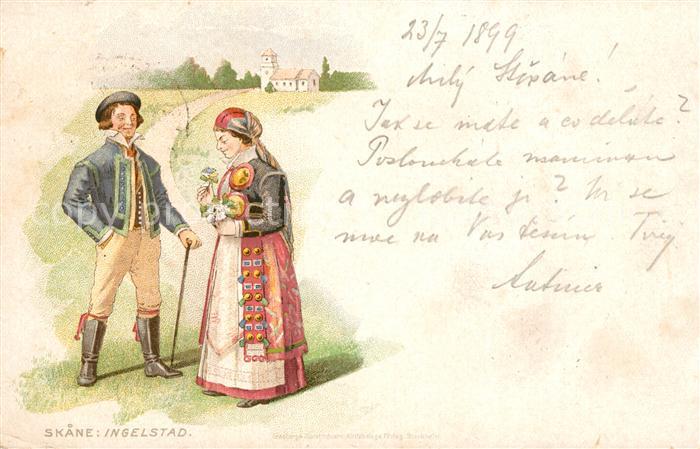 23/7 1899
Milý Štěpáne!
Jak se máte a co děláte?
Posloucháte maminku
a nezlobíte ji? Já se
moc na Vás těším Tvůj
SKÅNE: INGELSTAD.